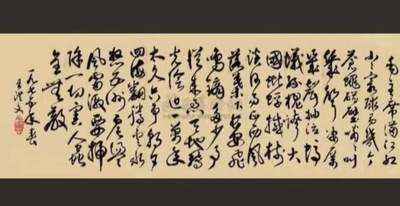 毛主席满江红
小小寰球有几个
苍蝇碰壁嗡嗡叫
几声凄厉
几声抽泣蚂
蚁缘槐夸大
国蚍蜉撼树
谈何易正西风
落叶下长安飞
鸣镝多少事
从来急天地转
光阴迫一万年
太久只争朝夕
四海翻腾云水
怒五洲震荡
风雷激要扫
除一切害人虫
全无敌
一九七年春